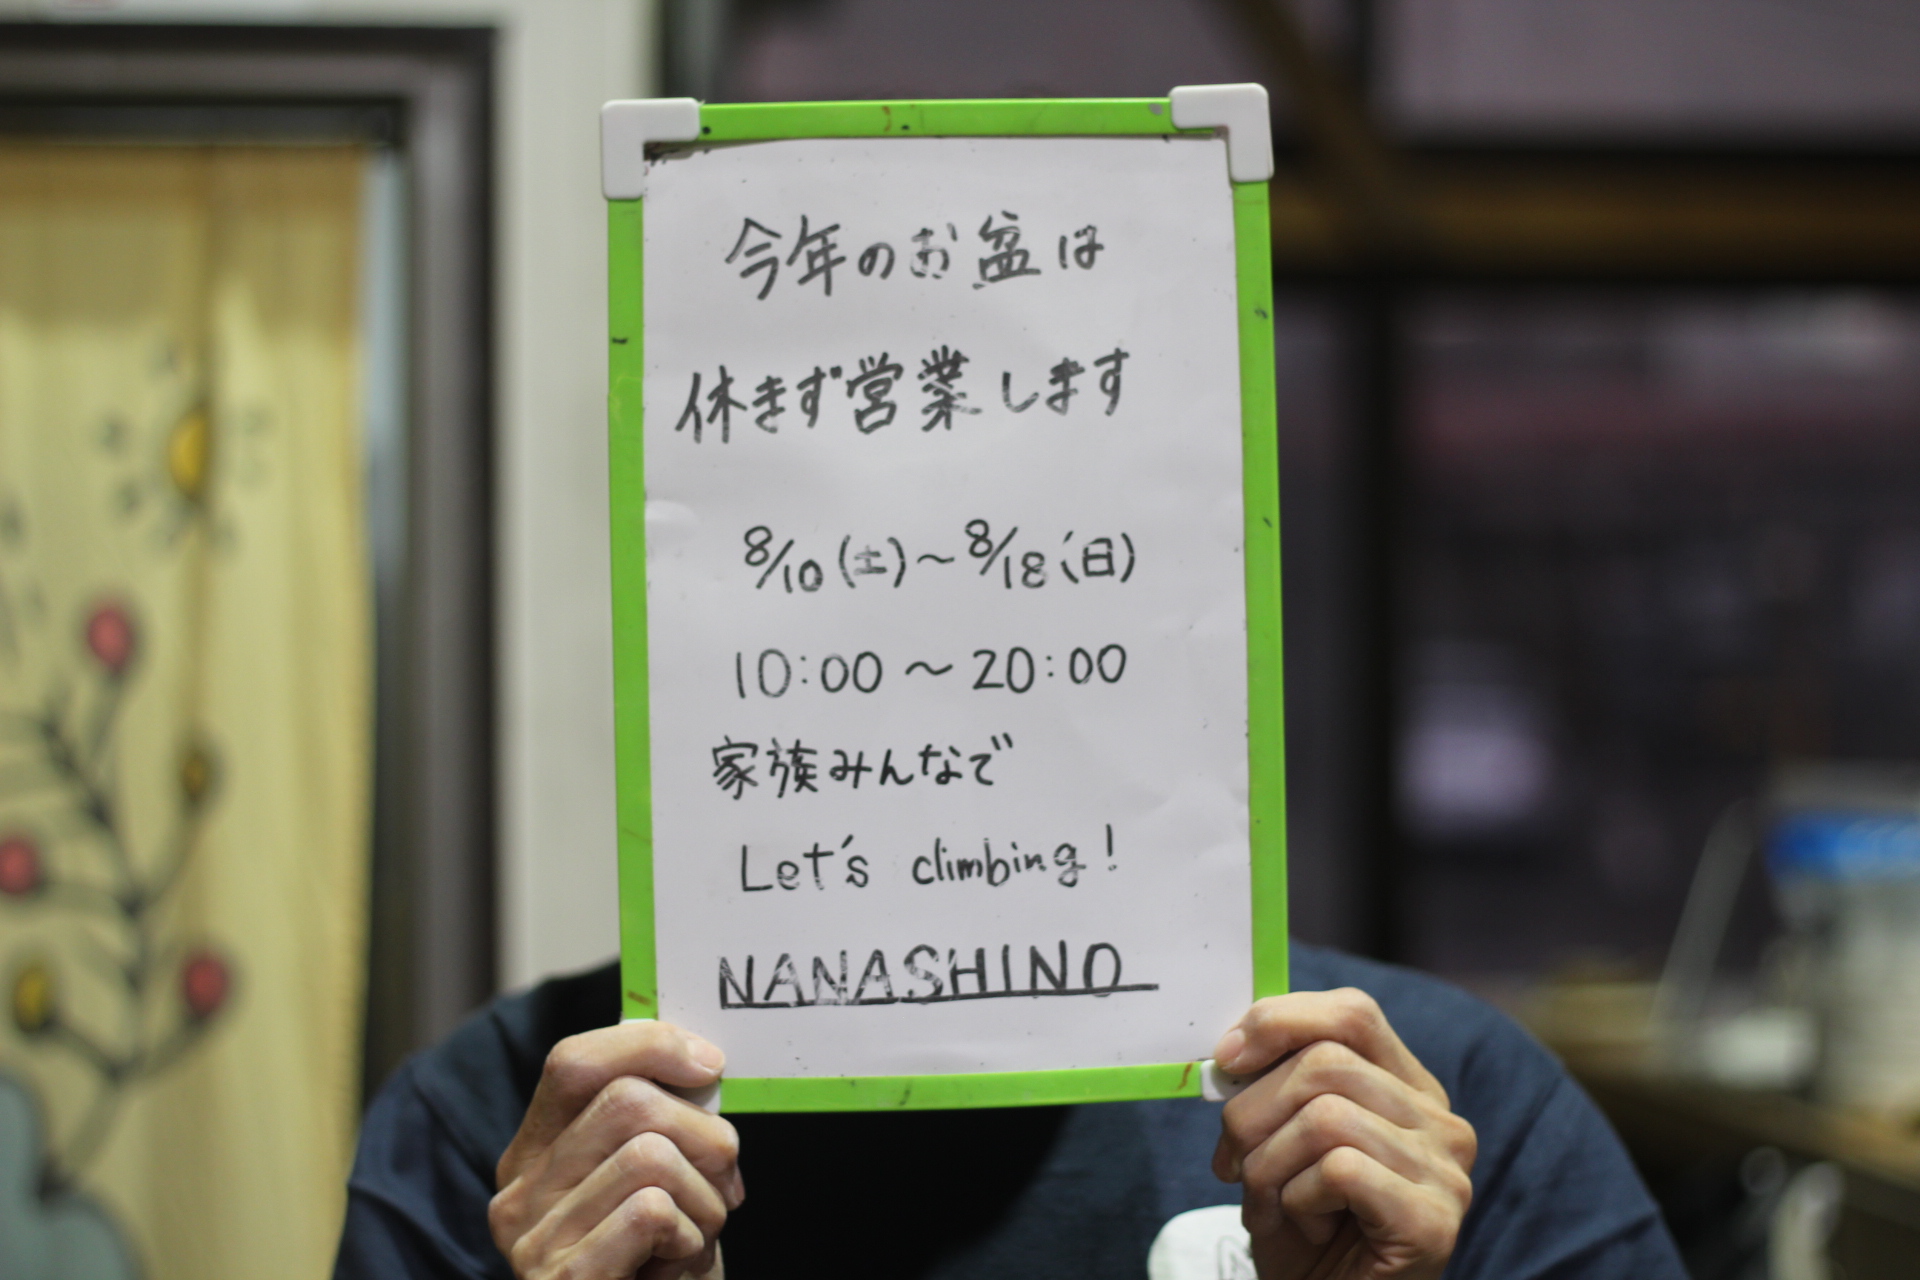 今年のお盆は
休まず営業します
8/10(土)～8/18(日)
10:00～20:00
家族みんなで
Let's climbing!
NANASHINO